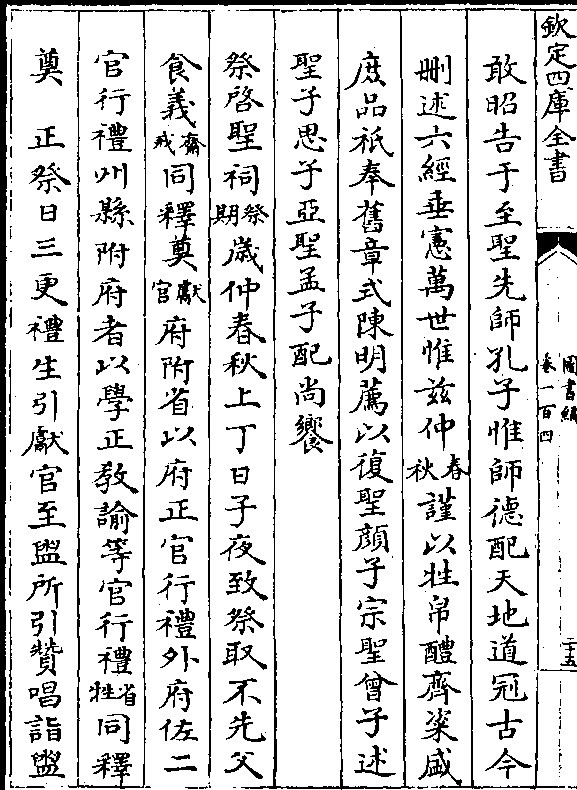 欽定四庫全書
圖書編
卷一百四
二十五
敢昭告于至聖先師孔子惟師德配天地道冠古今
刪述六經垂憲萬世惟兹仲春秋謹以牲帛醴齊粢盛
庶品祇奉舊章式陳明薦以復聖顔子宗聖曾子述
聖子思子亞聖孟子配尚饗
祭啓聖祠祭期歲仲春秋上丁日子夜致祭取不先父
食義齋戒同釋奠獻官府附省以府正官行禮外府佐二
官行禮州縣附府者以學正教諭等官行禮省牲同釋
奠　正祭日三更禮生引獻官至盥所引贊唱詣盥